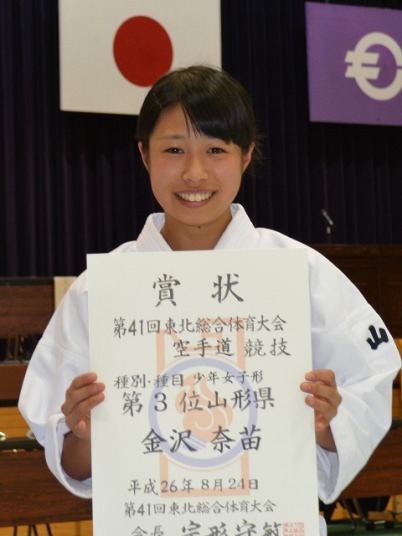 賞状
第41回東北総合体育大会
空手道 競技
種別・種目 少年女子形
第3位山形県
金沢 奈苗
平成26年8月24日
第41回東北総合体育大会
会長 宗形守敏
山